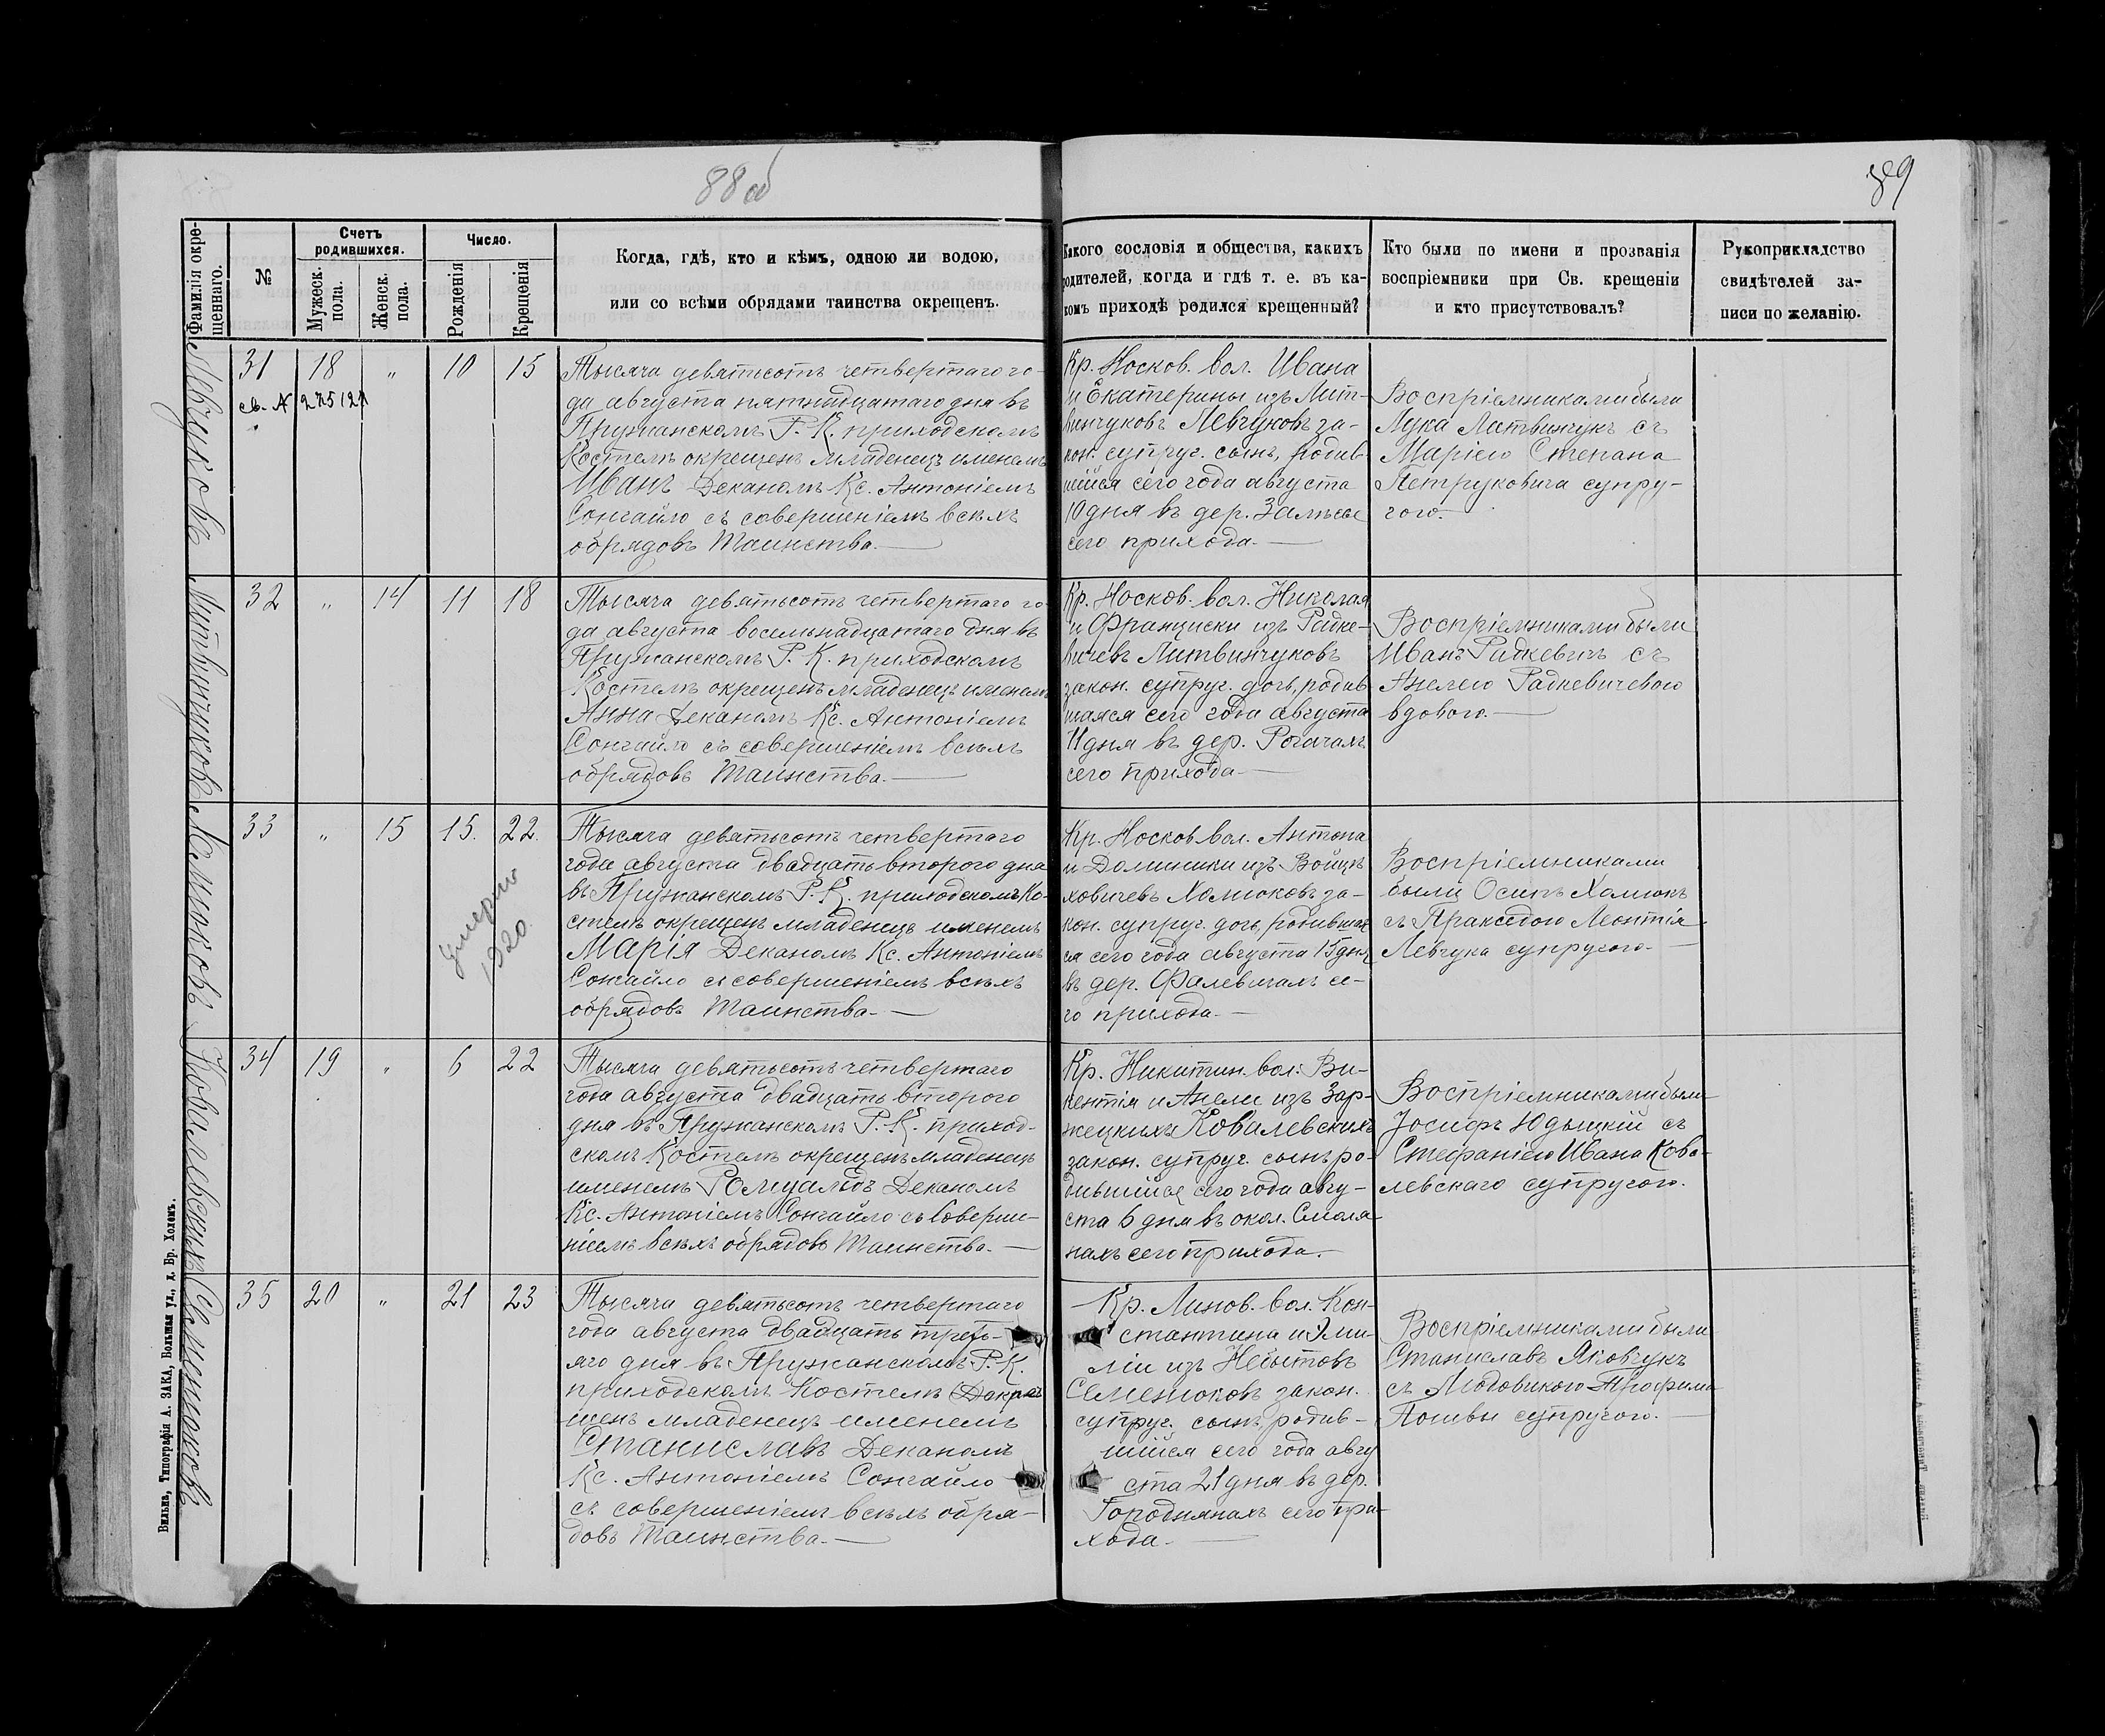 88 об
89
Фамилія окре-
щеннаго.
№
Счетъ
родившихся.
Мужеск.
пола.
Женск.
пола.
Число.
Рожденія
Крещенія
Когда, гдѣ, кто и кѣмъ, одною ли водою,
или со всѣми обрядами таинства окрещенъ.
Какого сословія и общества, какихъ
родителей, когда и гдѣ т. е. въ ка-
комъ приходѣ родился крещенный?
Кто были по имени и прозванія
воспріемники при Св. крещеніи
и кто присутствовалъ?
Рукоприкладство
свидѣтелей за-
писи по желанію.
Левчуковъ
31
св. №
18
"
10
15
Тысяча девятьсотъ четвертаго го-
да августа пятнадцатаго дня въ
Пружанскомъ Р. К. приходскомъ
Костелѣ окрещенъ младенецъ именемъ
Иванъ Деканомъ Кс. Антоніемъ
Сонгайло съ совершеніемъ всѣхъ
обрядовъ Таинства.—
Кр. Носков. вол. Ивана
и Екатерины изъ Лит-
винчуковъ Левчуковъ за-
кон. супруг. сынъ, родив-
шійся сего года августа
10 дня въ дер. Залѣсье
сего прихода.—
Воспріемниками были
Лука Литвинчукъ съ
Маріею Степана
Петруковича супру-
гою.—
Литвинчуковъ
32
"
14
11
18
Тысяча девятьсотъ четвертаго го-
да августа восемьнадцатаго дня въ
Пружанскомъ Р. К. приходскомъ
Костелѣ окрещенъ младенецъ именемъ
Анна Деканомъ Кс. Антоніемъ
Сонгайло съ совершеніемъ всѣхъ
обрядовъ Таинства.—
Кр. Носков. вол. Николая
и Франциски изъ Радке-
вичевъ Литвинчуковъ
закон. супруг. дочь, родив-
шаяся сего года августа
11 дня въ дер. Рогачахъ
сего прихода—
Воспріемниками были
Иванъ Радкевичъ съ
Анелею Радкевичевою
вдовою.—
Хомюковъ
33
"
15
15.
22.
Умерла
1920
Тысяча девятьсотъ четвертаго
года августа двадцать второго дня
въ Пружанскомъ Р. К. приходскомъ Ко-
стелѣ окрещенъ младенецъ именемъ
Марія Деканомъ Кс. Антоніемъ
Сонгайло съ совершеніемъ всѣхъ
обрядовъ Таинства.—
Кр. Носков. вол. Антона
и Доминики изъ Войцѣ-
ховичевъ Хомюковъ за-
кон. супруг. дочь, родившая-
ся сего года августа 15 дня
въ дер. Фалевичахъ се-
го прихода.—
Воспріемниками
были Осипъ Хомюкъ
съ Пракседою Леонтія
Левчука супругою.—
Ковалевскихъ
34
19
"
6
22
Тысяча девятьсотъ четвертаго
года августа двадцать второго
дня въ Пружанскомъ Р. К. приход-
скомъ Костелѣ окрещенъ младенецъ
именемъ Ромуальдъ Деканомъ
Кс. Антоніемъ Сонгайло съ соверше-
ніемъ всѣхъ обрядовъ Таинства.—
Кр. Никитин. вол. Ви-
кентія и Анели изъ Зар-
жецкихъ Ковалевскихъ
закон. супруг. сынъ ро-
дившійся сего года авгу-
ста 6 дня въ окол. Смоля-
нахъ сего прихода.—
Воспріемниками были
Іосифъ Юдыцкій съ
Стефаніею Ивана Кова-
левскаго супругою.
Семенюковъ
35
20
"
21
23
Тысяча девятьсотъ четвертаго
года августа двадцать треть-
яго дня въ Пружанскомъ Р. К.
приходскомъ Костелѣ окре-
щенъ младенецъ именемъ
Станиславъ Деканомъ
Кс. Антоніемъ Сонгайло
съ совершеніемъ всѣхъ обря-
довъ Таинства.—
Кр. Линов. вол. Кон-
стантина и Эми-
ліи изъ
Семенюковъ закон.
супруг. сынъ, родив-
шійся сего года авгу
ста 21 дня въ дер.
Городнянахъ сего при-
хода.—
Воспріемниками были
Станиславъ Яковчукъ
съ Людовикою Трофима
супругою.—
Вильна, Типографія А. ЗАКА, Большая ул., д. Бр. Холемъ.